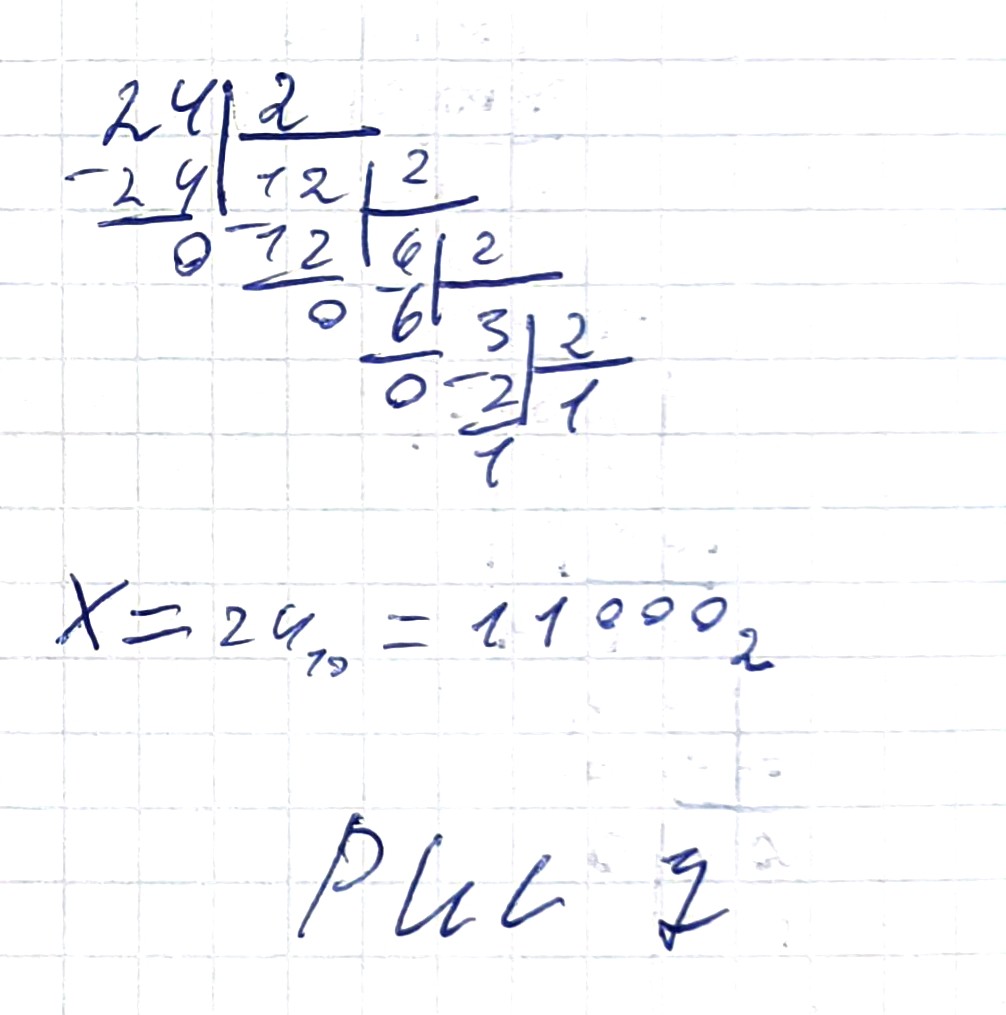 24 2
-24 12 2
0 -12 6 2
0 -6 3 2
0 -2 1
1
X = 24₁₀ = 11000₂
Рис